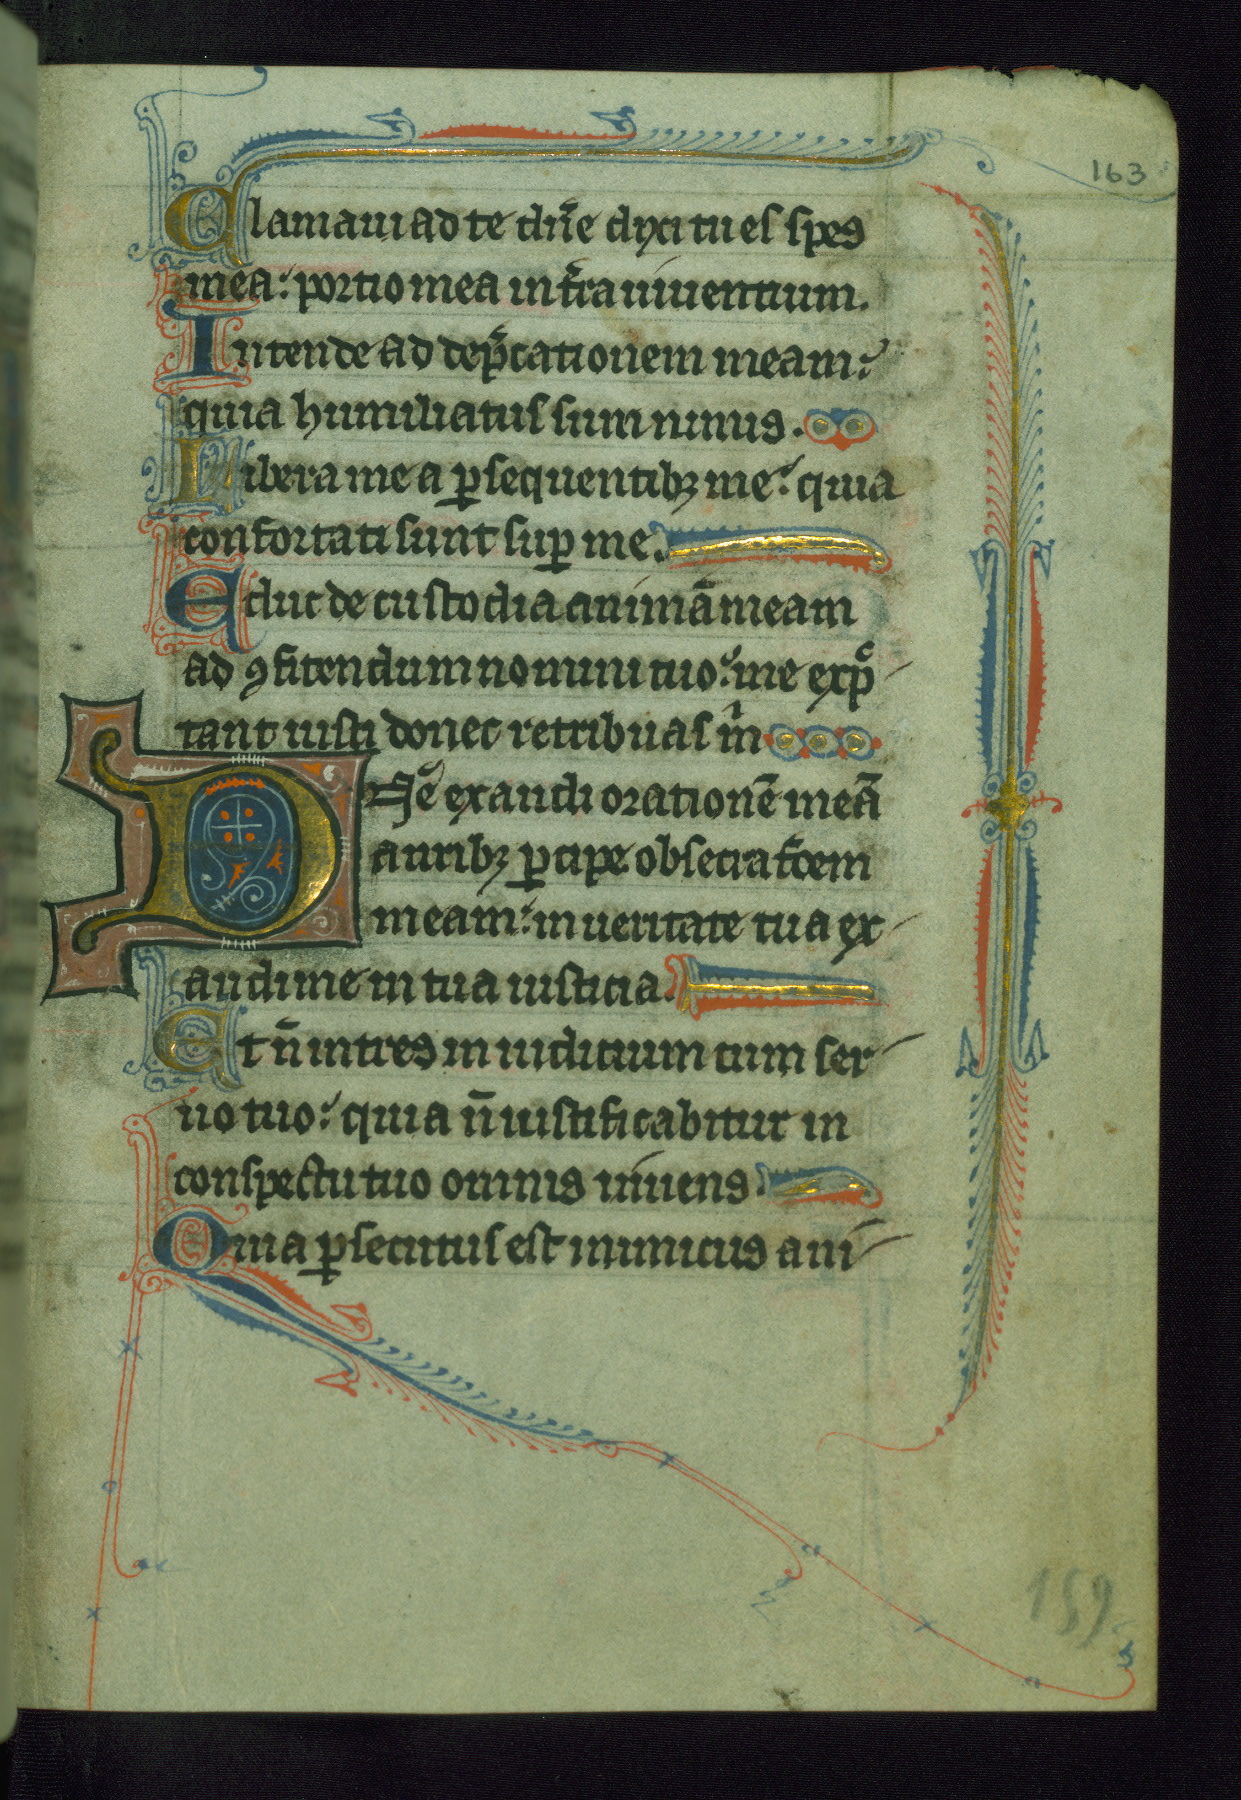 163
Clamaui ad te dn̄e dixi tu es spes
mea: portio mea in t̄ra uiuentium.
Intende ad dep̄cationem meam:
quia humiliatus sum nimis.
Libera me a ꝑsequentibꝫ me: quia
confortati sunt suꝑ me.
Educ de custodia animā meam
ad ꝯfitendum nomini tuo: me exp̄
tant iusti donec retribuas m̄
Dn̄e exaudi orationē meā
auribꝫ ꝑcipe obsecrat̄oem
meam: in ueritate tua ex
audi me in tua iusticia.
Et n̄ intres in iudicium cum ser
uo tuo: quia n̄ iustificabitur in
conspectu tuo omnis uiuens.
Quia ꝑsecutus est inimicus ani
159